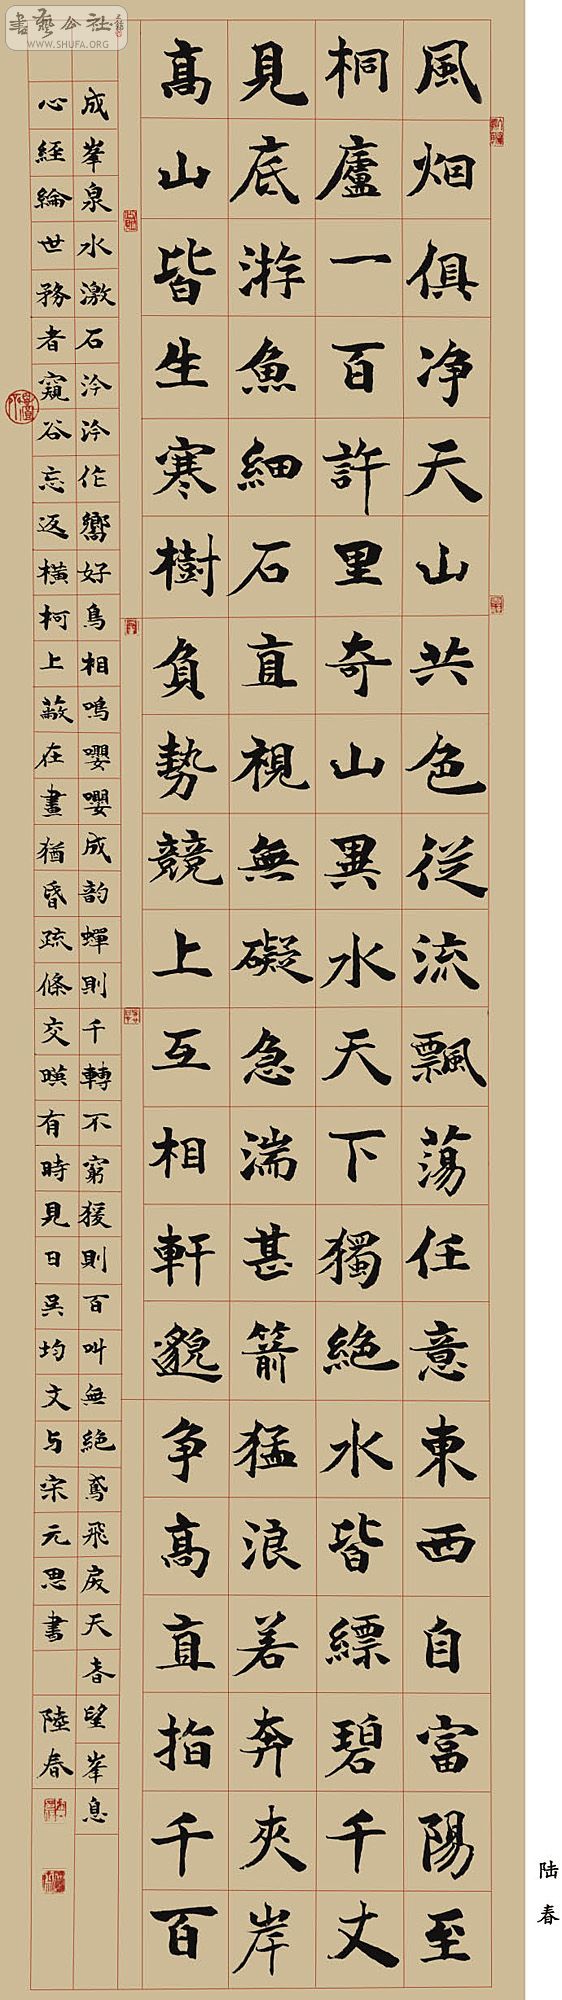 風烟俱净天山共色從流飄蕩任意東西自富陽至
桐廬一百許里奇山異水天下獨絶水皆縹碧千丈
見底游魚細石直視無礙急湍甚箭猛浪若奔夾岸
高山皆生寒樹負勢競上互相軒邈争高直指千百
成峯泉水激石泠泠作響好鳥相鳴嚶嚶成韵蟬則千轉不窮猨則百叫無絶鳶飛戾天者望峯息
心經綸世務者窺谷忘返橫柯上蔽在晝猶昏疏條交暎有時見日吳均文与宋元思書 陸春
陆春
書藝公社
WWW.SHUFA.ORG